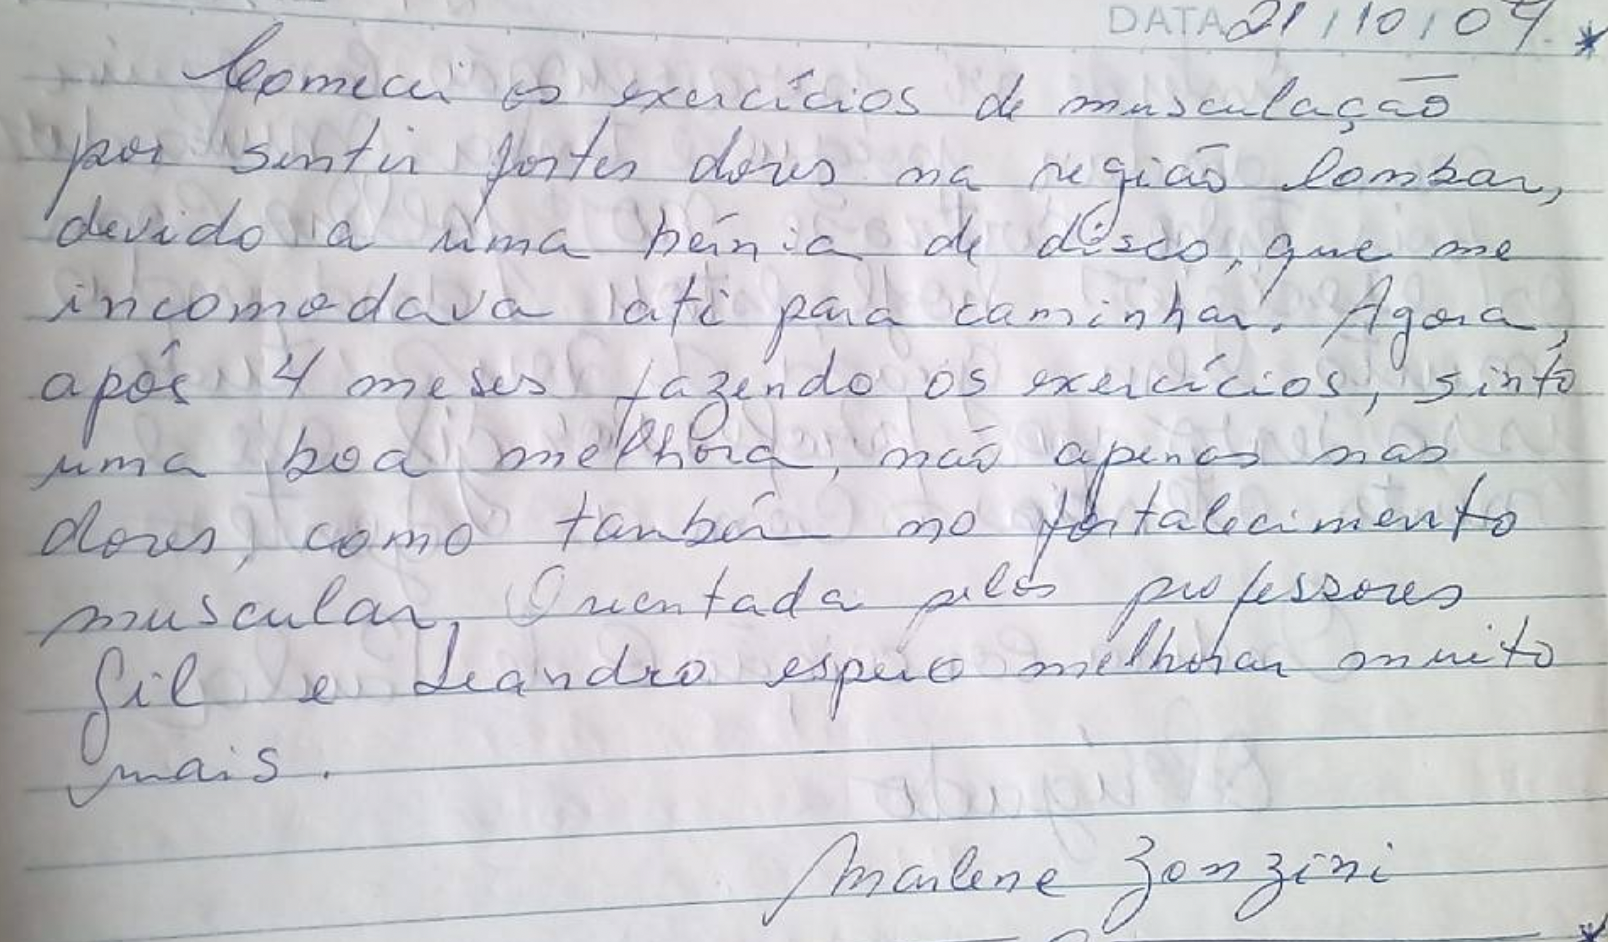 DATA 21/10/09
Comecei os exercícios de musculação
por sentir fortes dores na região lombar,
devido a uma hérnia de disco, que me
incomodava até para caminhar. Agora,
após 4 meses fazendo os exercícios, sinto
uma boa melhora, não apenas nas
dores, como também no fortalecimento
muscular. Orientada pelos professores
Gil e Leandro espero melhorar muito
mais.
Marlene Zonzini